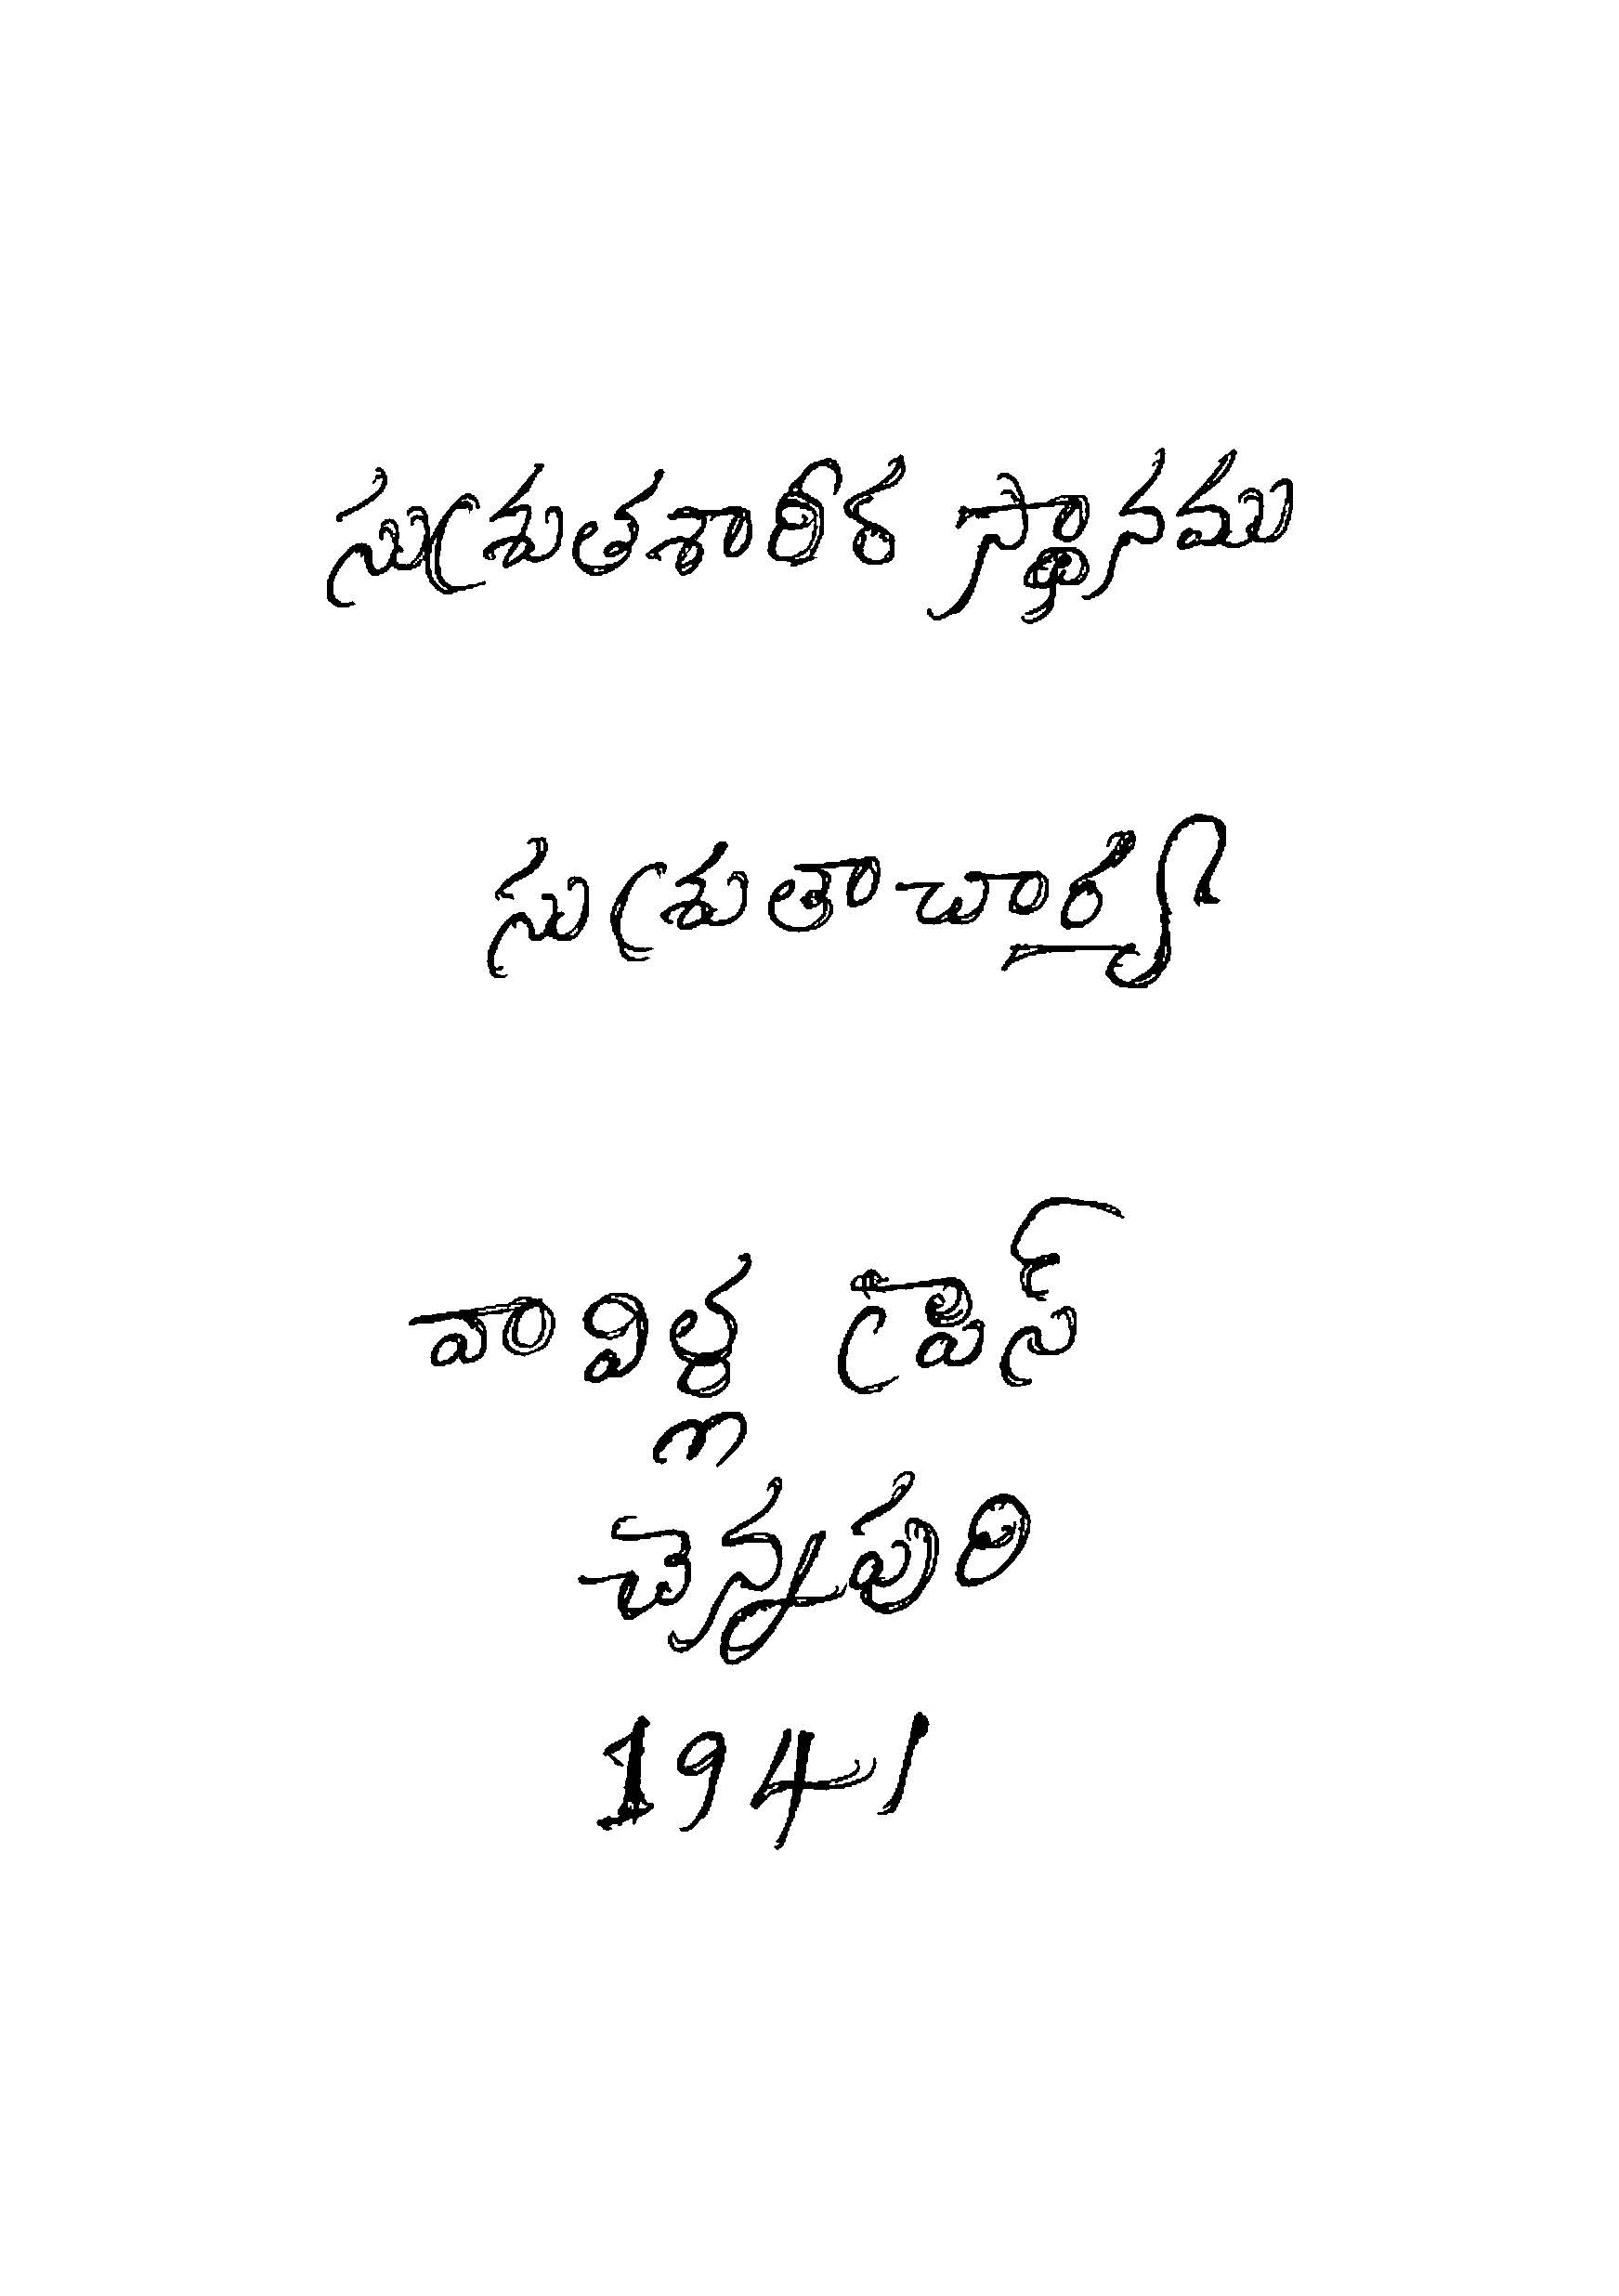 సుశ్రుతశారీర స్థానము
సుశ్రుతాచార్య
వావిళ్ల ప్రెస్
చెన్నపురి
1941